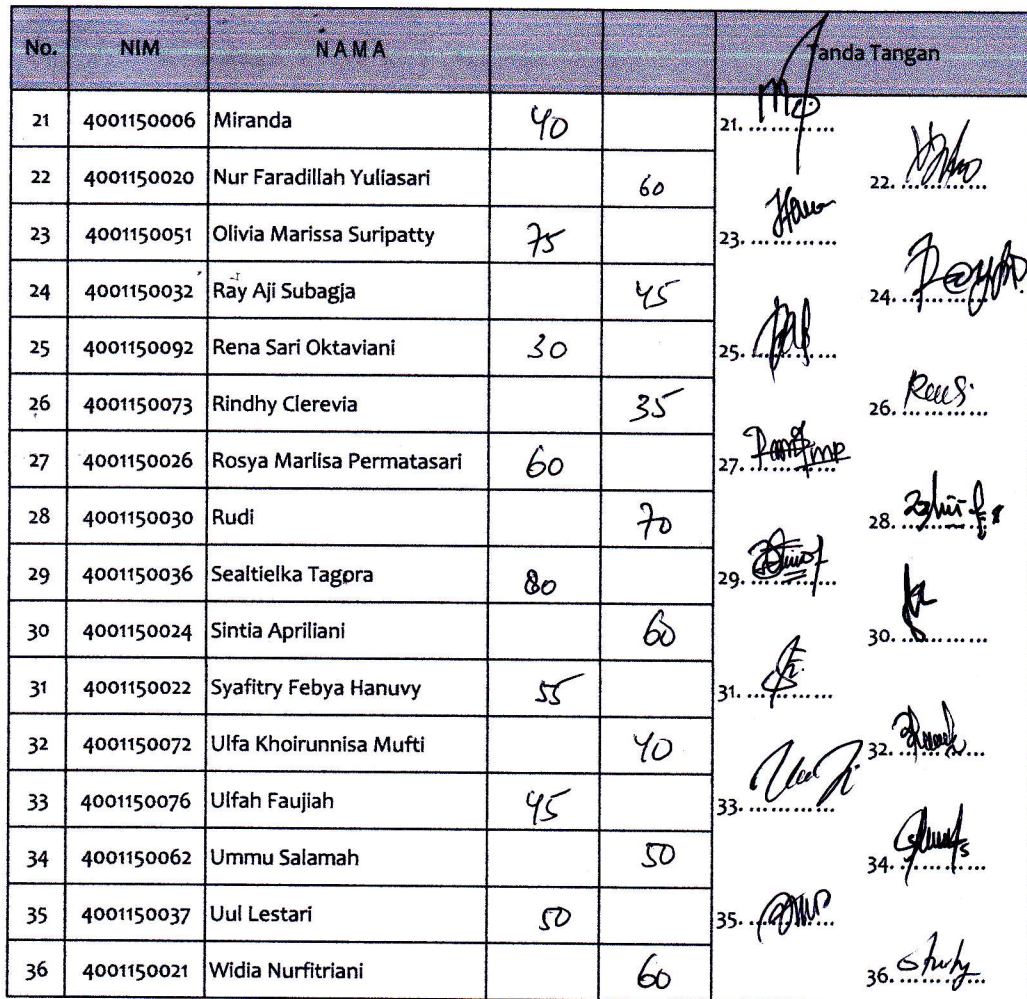 No. NIM NAMA Tanda Tangan
21 4001150006 Miranda 40 21. ............
22 4001150020 Nur Faradillah Yuliasari 60 22. ............
23 4001150051 Olivia Marissa Suripatty 75 23. ............
24 4001150032 Ray Aji Subagja 45 24. ............
25 4001150092 Rena Sari Oktaviani 30 25. ............
26 4001150073 Rindhy Clerevia 35 26. ............
27 4001150026 Rosya Marlisa Permatasari 60 27. ............
28 4001150030 Rudi 70 28. ............
29 4001150036 Sealtielka Tagora 80 29. ............
30 4001150024 Sintia Apriliani 60 30. ............
31 4001150022 Syafitry Febya Hanuvy 55 31. ............
32 4001150072 Ulfa Khoirunnisa Mufti 40 32. ............
33 4001150076 Ulfah Faujiah 45 33. ............
34 4001150062 Ummu Salamah 50 34. ............
35 4001150037 Uul Lestari 50 35. ............
36 4001150021 Widia Nurfitriani 60 36. ............